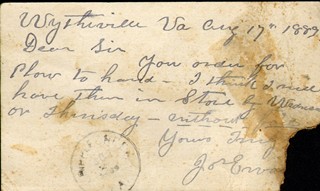 Wytheville Va Aug 17th 1889
Dear Sir
You order for
Plow to hand - I think I will
have them in Store by Wednes
or Thursday - without
Yours Truly